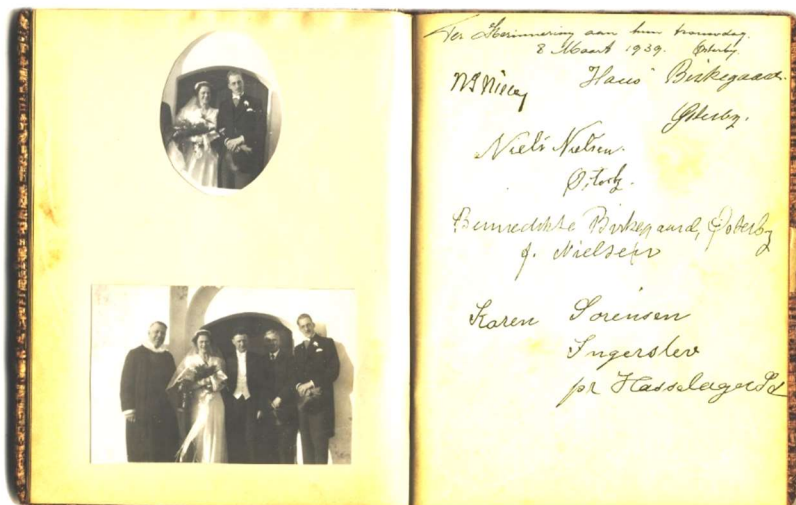 Ter Herinnering aan hun trouwdag.
8 Maart 1939. Østerby.
Hans Birkegaard.
Østerby.
Niels Nielsen.
Østerby.
Benedikte Birkegaard, Østerby
f. Nielsen
Karen Sørensen
Ingerslev
pr Hasselager St